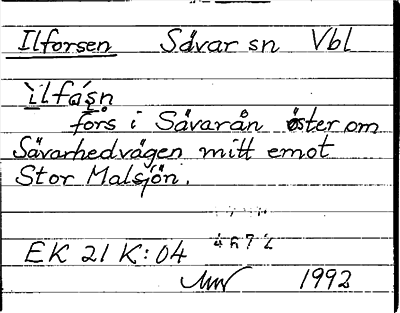 Ilforsen Sävar sn Vbl
ìlfåsn
fors i Sävarån öster om
Sävarhedvägen mitt emot
Stor Malsjön.
4672
EK 21 K:04
1992